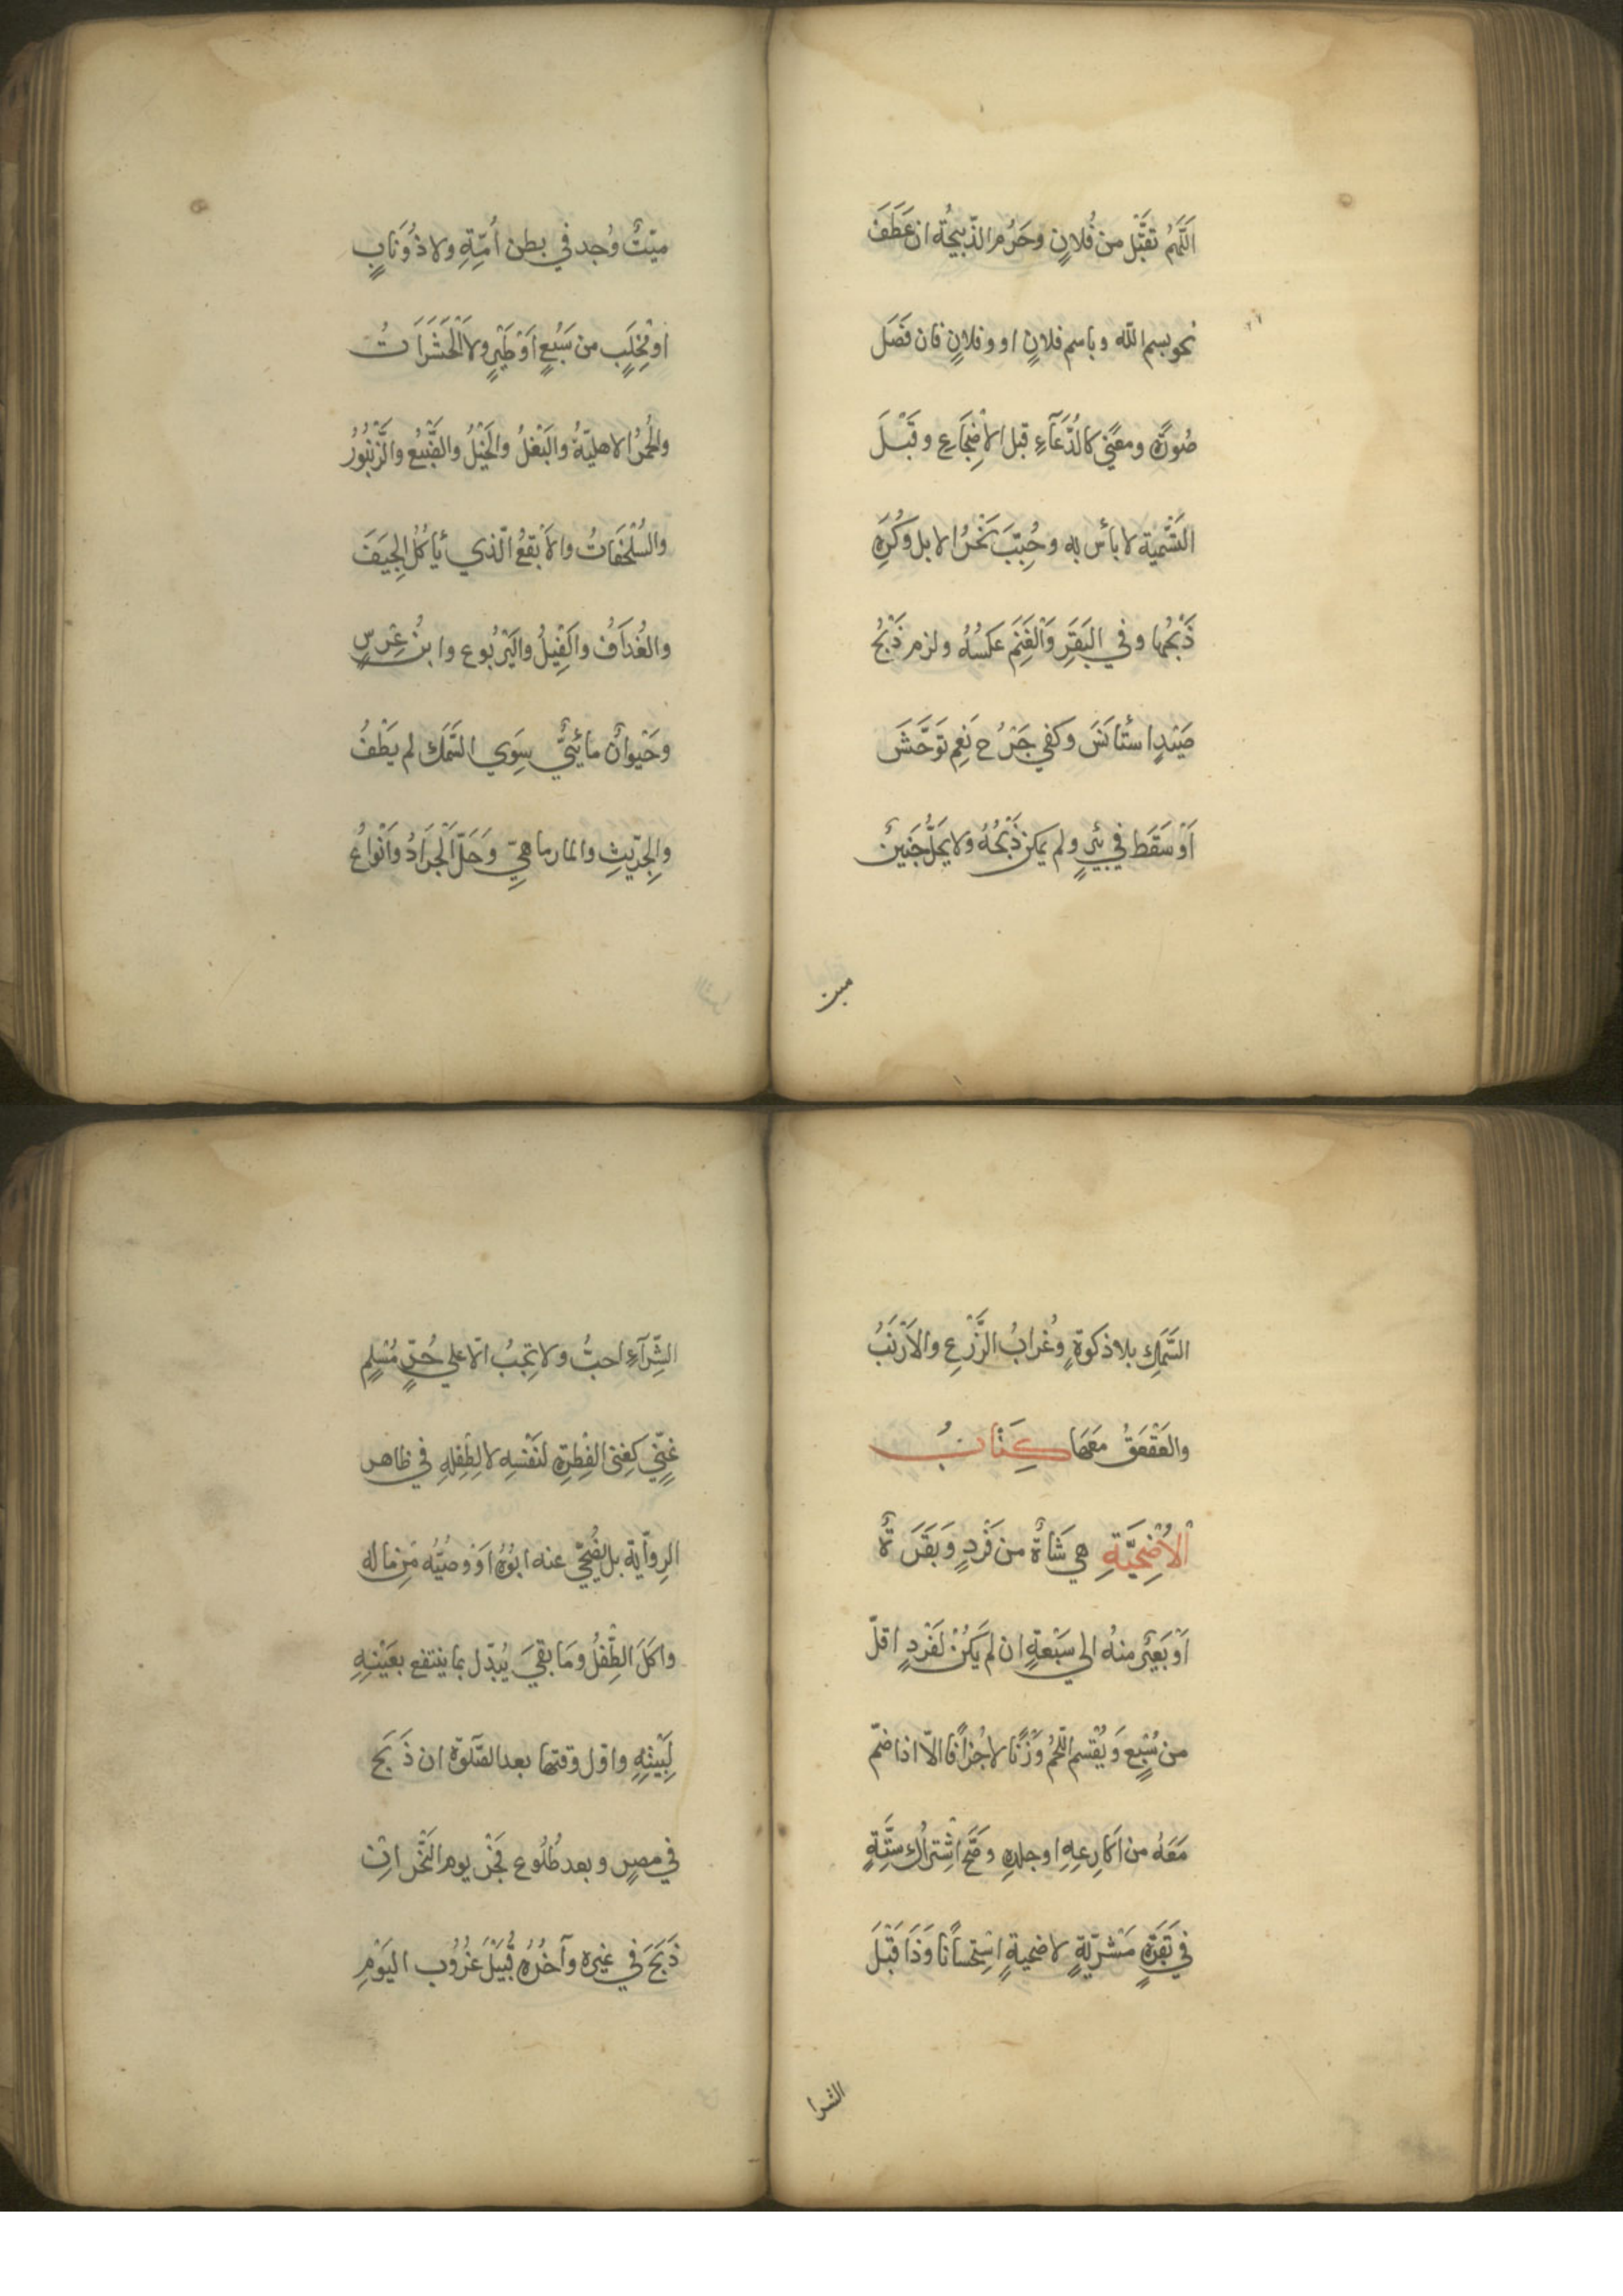 اَللّٰهُمَّ تَقَبَّل من فُلانٍ وحَرُم الذّبيحَةُ ان عَطَفَ
نحو بسم الله وباسم فلانٍ او وفلانٍ فان فَصَلَ
صُورَةً ومعنًى كالدُّعَآءِ قبل الاضِجَاعِ وقَبْلَ
التَّسْمِيَة لا بأس به وحُبِّبَ نَحْرُ الابل وكُرِهَ
ذَبْحُها وفي البَقَرِ وَالغَنَمِ عكسُهُ ولزم ذَبْحُ
صَيْدٍ استَأنَسَ وكَفي جَرْحُ نَعِمٍ تَوَحَّشَ
اَوْ سَقَطَ في بئرٍ ولم يمكن ذَبْحُهُ ولا يَحِلُّ جَنِينٌ
ميت
ميّتٌ وُجد في بطن اُمِّهِ ولا ذُو نَابٍ
او مِخْلَبٍ من سَبُعٍ اَوْ طَيْرٍ ولا الْحَشَرَاتُ
والحُمُرُ الاهليّةُ والبَغْلُ والخَيْلُ والضَّبُعُ والزُّنْبُورُ
والسُّلَحْفَاتُ والاَبْقَعُ الّذي يأكُلُ الجِيَفَ
والغُدَافُ والفِيْلُ واليَرْبُوع وابنُ عِرْسٍ
وحَيْوانٌ مائِيٌّ سِوَي السَّمَك لم يَطْفُ
والجِرّيثِ والمارماهِيِّ وَحَلَّ الْجَرَادُ وَاَنْواعُ
السَّمَكِ بلا ذكوةٍ وغُرابُ الزَّرْعِ والاَرْنَبُ
والعَقْعَقُ مَعَهَا كِتَابُ
الْاُضْحِيَّةِ هي شَاةٌ من فَرْدٍ وَبَقَرَةٌ
اَوْ بَعِيرٌ منهُ الي سَبْعةٍ ان لم يَكُنْ لفَرْدٍ اقلّ
من سُبْعٍ وَيُقْسم اللَّحْمُ وَزْنًا لا جُزافًا الّا اذا ضمّ
مَعَهُ من اَكَارِعِهِ او جلدِهِ وصَحَّ اشْتِراكُ ستّةٍ
في بَقَرَةٍ مَشْرِيَّةٍ لاضحيةٍ اسْتِحْسَانًا وَذَا قَبْلَ
الشرا
الشِّرَآءِ احبُّ ولا تجِبُ الّا علي حُرٍّ مُسْلِمٍ
غَنِيٍّ كغِنى الفِطْرِةِ لنَفْسِهِ لا لِطِفْلِهِ في ظاهر
الرِوآية بل يُضَحِّي عنه ابُوُهُ اَوْ وصُيّهُ مِن مالهِ
واكَلَ الطّفْلُ ومَا بقيَ يُبدّل بما ينتفع بعَيْنِهِ
لِبَيْتِهِ واوّل وقتها بعد الصَّلوةِ ان ذَبَحَ
في مصرٍ وبعد طُلُوع فَجْرِ يوم النّحْر اِنْ
ذَبَحَ في غيره وآخرُهُ قُبَيْلَ غرُوُبِ اليَوْمِ